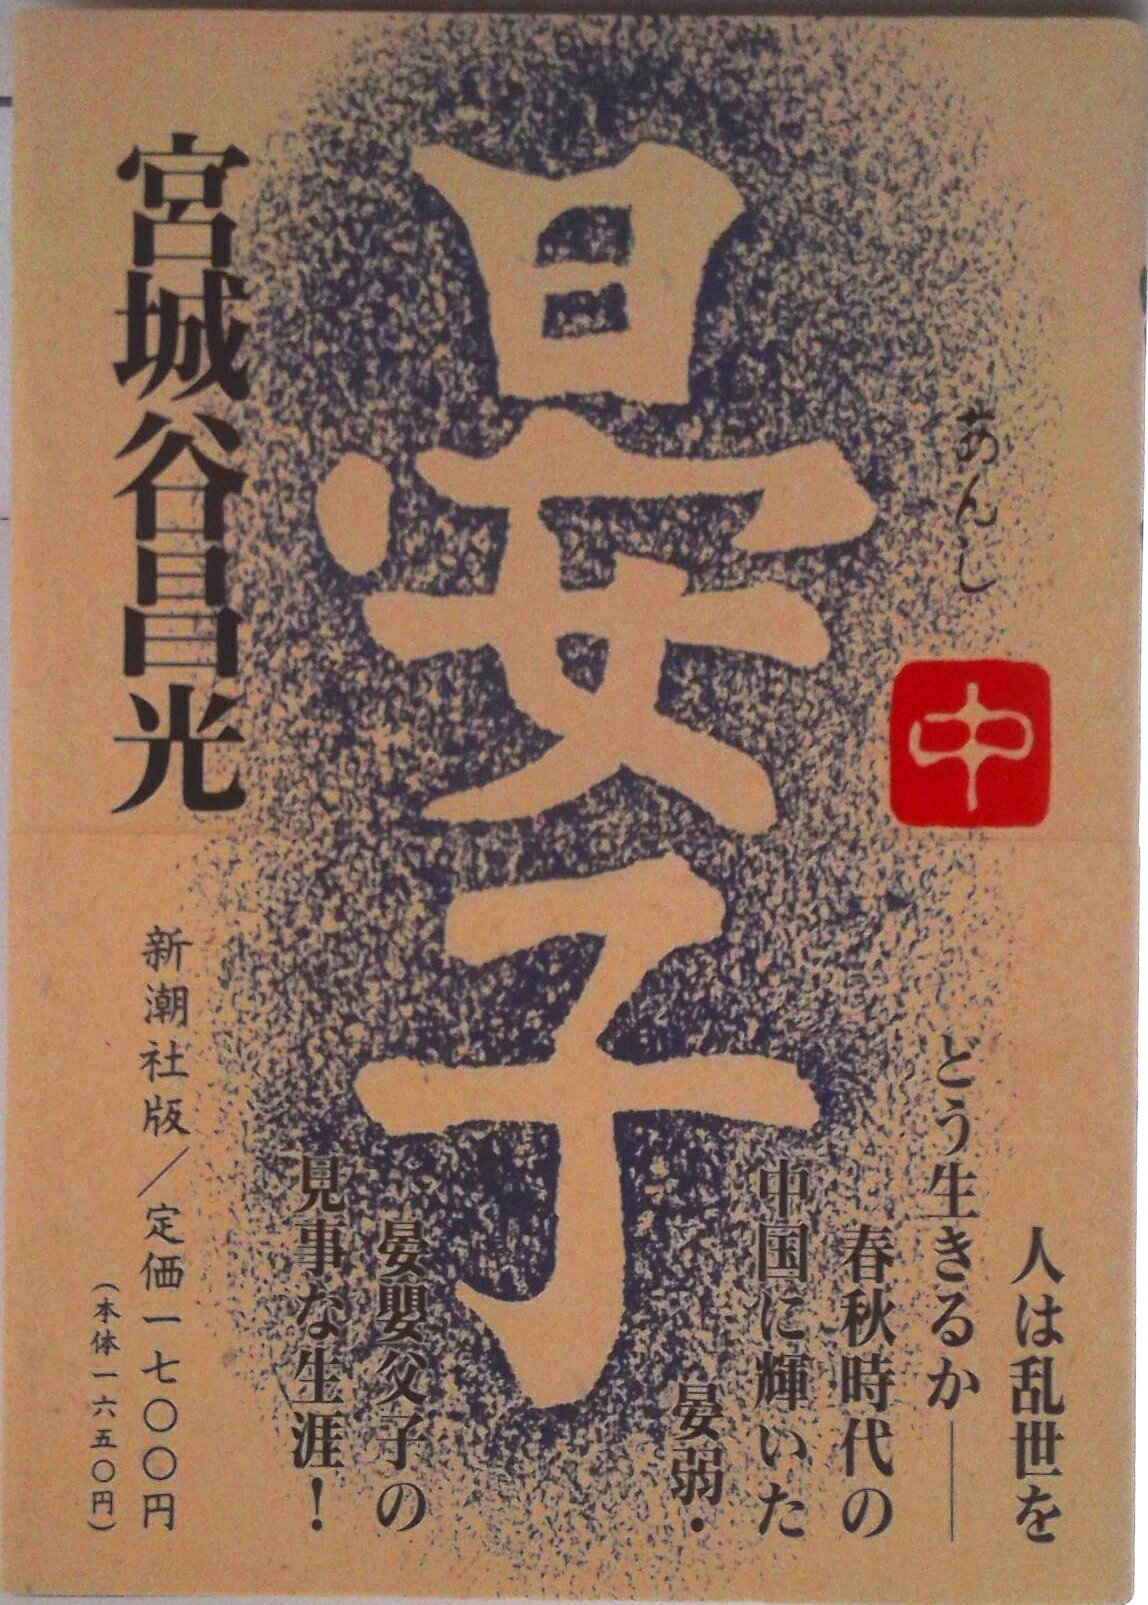 晏子
あんし
中
宮城谷昌光
人は乱世を
どう生きるか——
春秋時代の
中国に輝いた
晏弱・
晏嬰父子の
見事な生涯！
新潮社版／定価一七〇〇円
（本体一六五〇円）